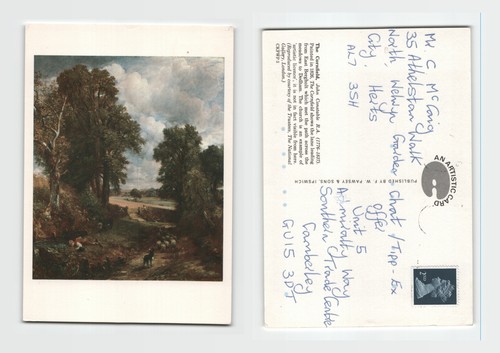 The Cornfield, John Constable R.A. (1776-1837).
Painted in 1826, The Cornfield shows the lane leading
from East Bergholt which met the path across the
meadows to Dedham. The church is an example of
'artistic licence', it is not in fact visible from here.
(Reproduced by courtesy of the Trustees, The National
Gallery, London.)
AN ARTISTIC CARD
PUBLISHED BY F. W. PAWSEY & SONS, IPSWICH
Mr. C. McCraig
35 Athelstan Walk
North, Welwyn Garden
City, Herts
AL7 3SH
Chat / Tipp-Ex
offer
Unit 5
Admiralty Way
Southern Trade Centre
Camberley
GU15 3DT